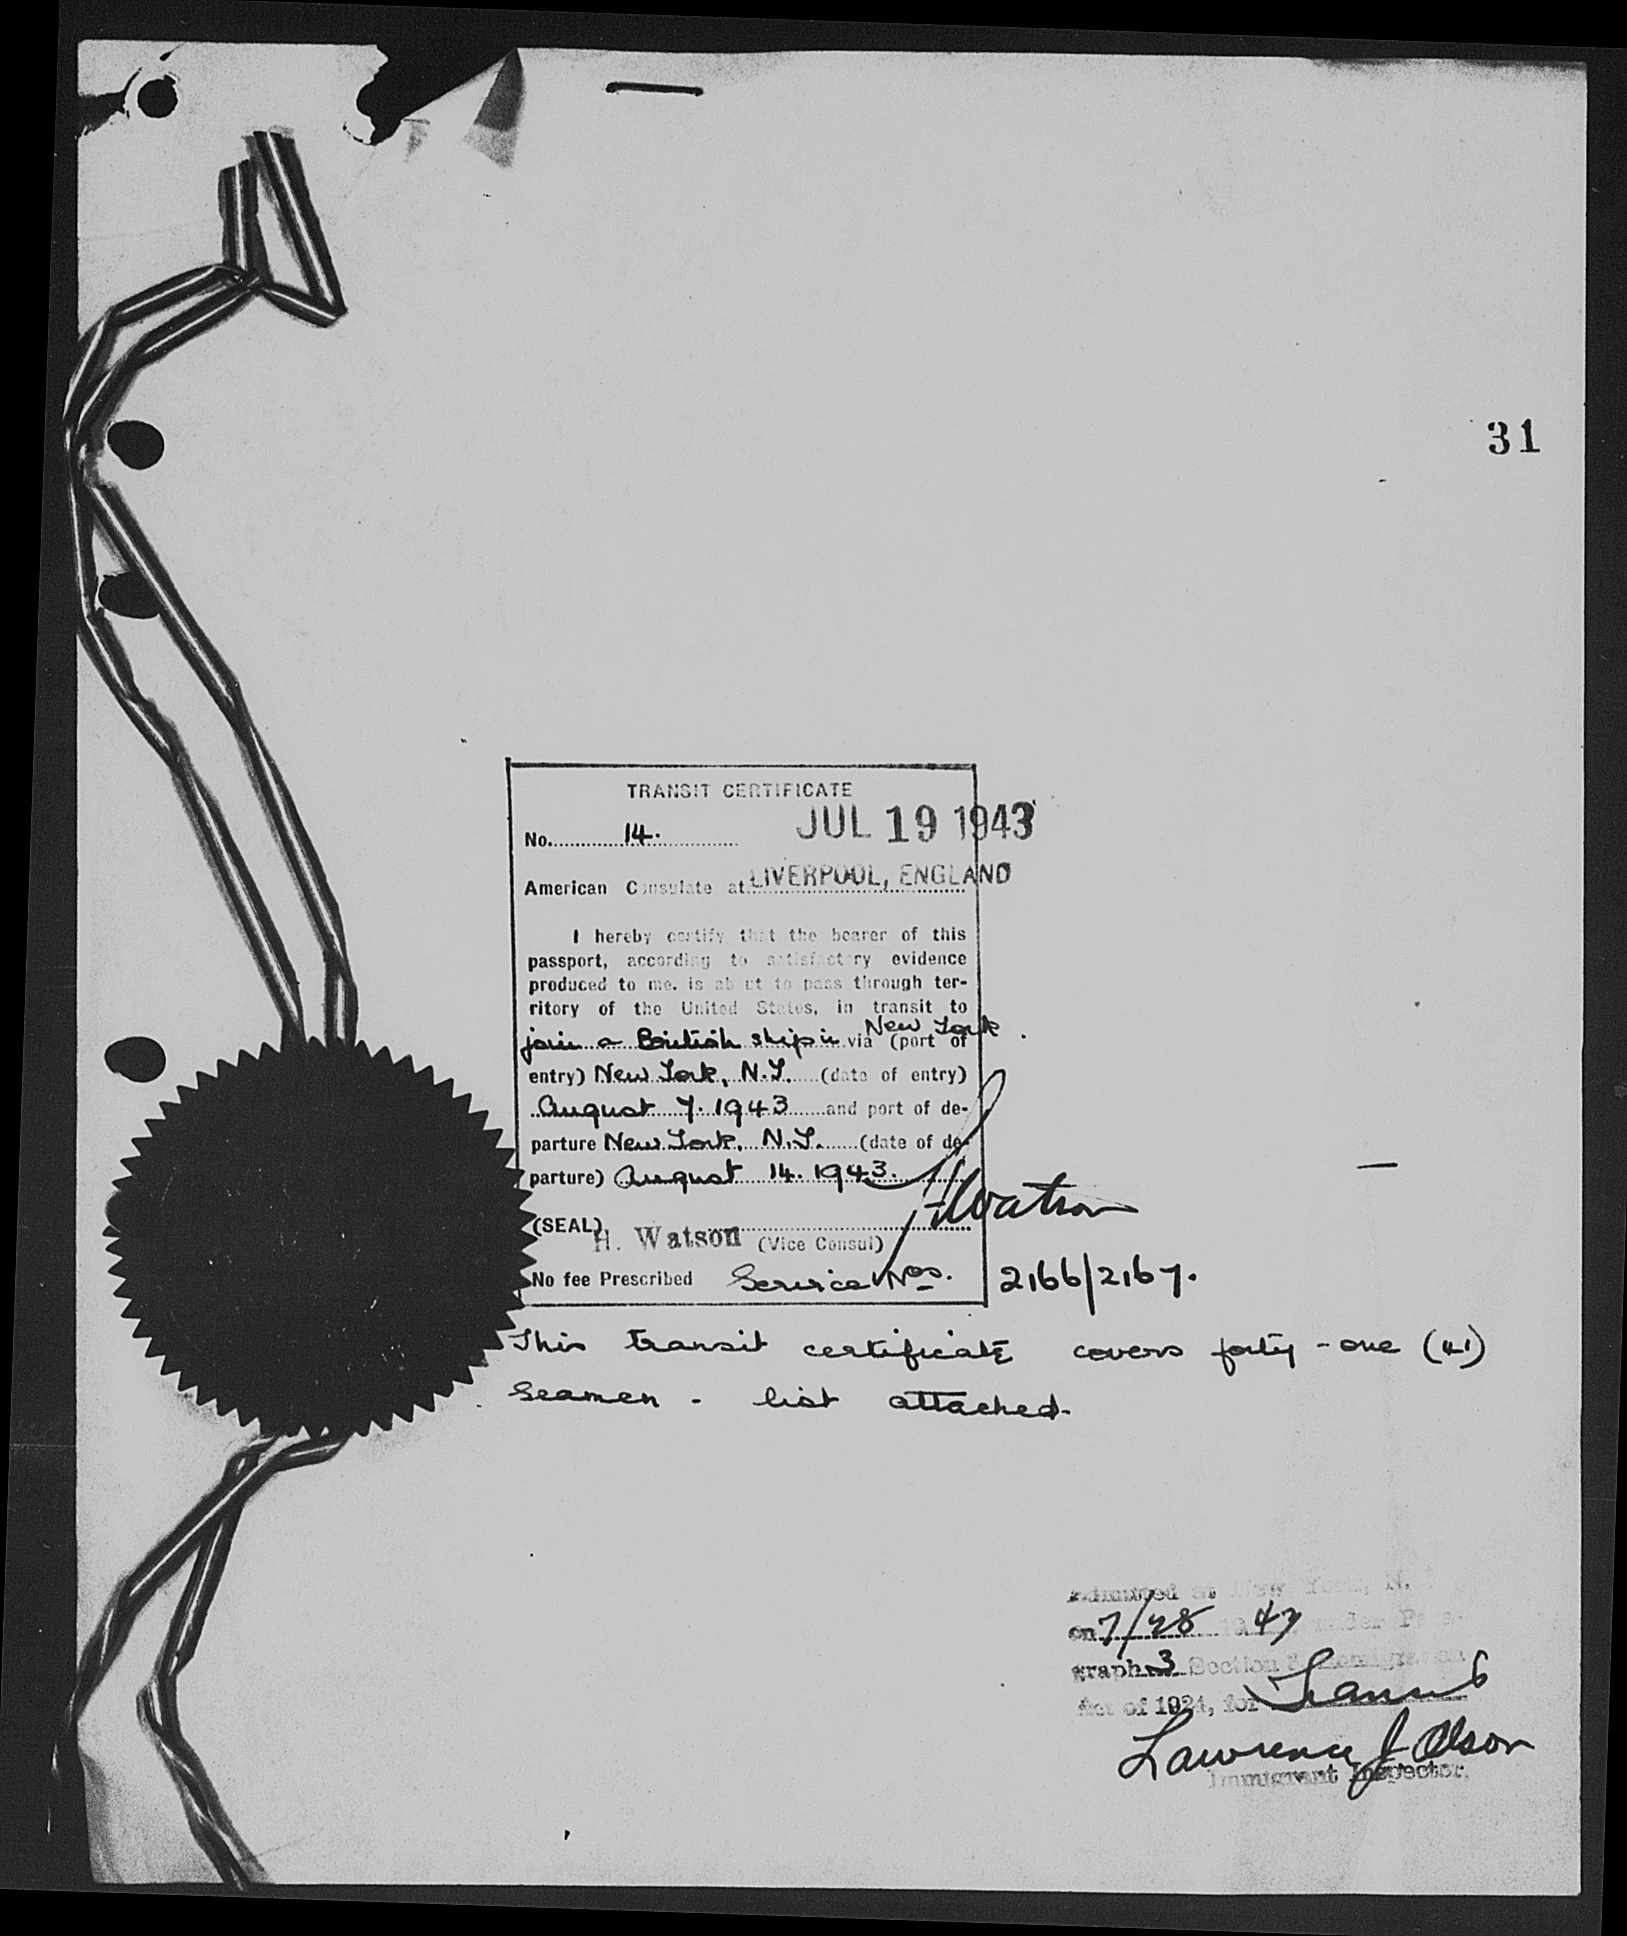 31
TRANSIT CERTIFICATE
No. 14. JUL 19 1943
American Consulate at LIVERPOOL, ENGLAND
I hereby certify that the bearer of this
passport, according to satisfactory evidence
produced to me, is about to pass through ter-
ritory of the United States, in transit to
join a British ship in New York via (port of
entry) New York, N.Y. (date of entry)
August 7. 1943 and port of de-
parture New York, N.Y. (date of de-
parture) August 14. 1943.
H Watson
(SEAL)
H. Watson (Vice Consul)
No fee Prescribed Service Nos. 2166/2167.
This transit certificate covers forty-one (41)
Seamen - list attached.
Admitted at New York, N.
on 7/28 43 under Para-
graph 3 Section 3 Immigration
Act of 1924, for Transit
Lawrence J Olson
Immigrant Inspector.